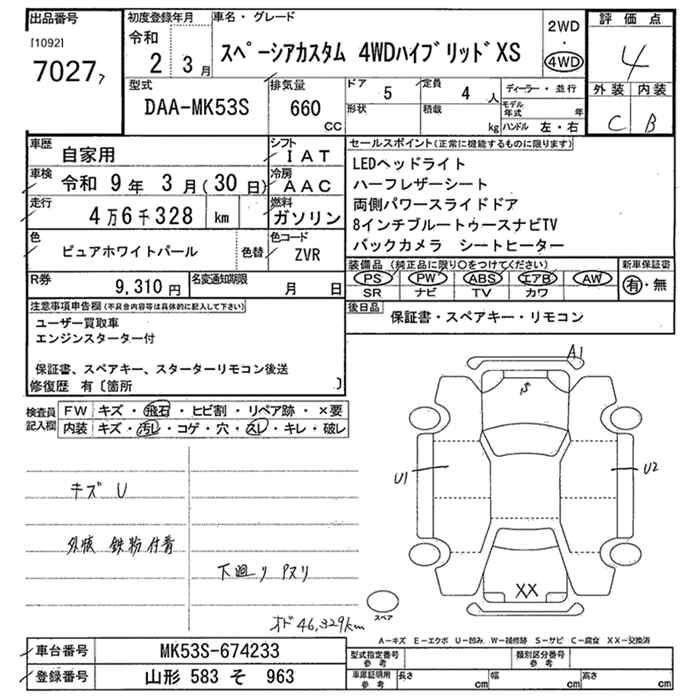 出品番号
[1092]
7027 ｱ
初度登録年月
令和
2 3月
車名・グレード
スペーシアカスタム 4WDハイブリッドXS
2WD
・
4WD
評価点
4
外装 内装
C B
型式
DAA-MK53S
排気量
660
cc
ドア
5
定員
4 人
形状
積載
kg
ディーラー・並行
モデル年式 年
ハンドル 左・右
車歴
自家用
シフト
IAT
車検
令和 9年 3月(30日)
冷房
AAC
走行
4万6千328 km
燃料
ガソリン
色
ピュアホワイトパール
色替
色コード
ZVR
R券
9,310円
名変通知期限
月 日
セールスポイント(正常に機能するものに限ります)
LEDヘッドライト
ハーフレザーシート
両側パワースライドドア
8インチブルートゥースナビTV
バックカメラ シートヒーター
装備品 (純正品に限り○をつけてください)
新車保証書
PS PW ABS エアB AW
SR ナビ TV カワ
有・無
後日品
保証書・スペアキー・リモコン
注意事項申告欄(不具合内容等は具体的に記入して下さい)
ユーザー買取車
エンジンスターター付
保証書、スペアキー、スターターリモコン後送
修復歴 有〔箇所 〕
検査員
記入欄
FW キズ・飛石・ヒビ割・リペア跡・×要
内装 キズ・汚レ・コゲ・穴・スレ・キレ・破レ
キズ U
外廻 鉄粉付着
下廻り サビ
オド 46,329km
A1
S
U1
U2
XX
スペア
A－キズ E－エクボ U－凹み W－補修跡 S－サビ C－腐食 XX－交換済
車台番号
MK53S-674233
登録番号
山形 583 そ 963
型式指定番号
参考
類別区分番号
参考
車庫証明用
参考
長さ cm
幅 cm
高さ cm